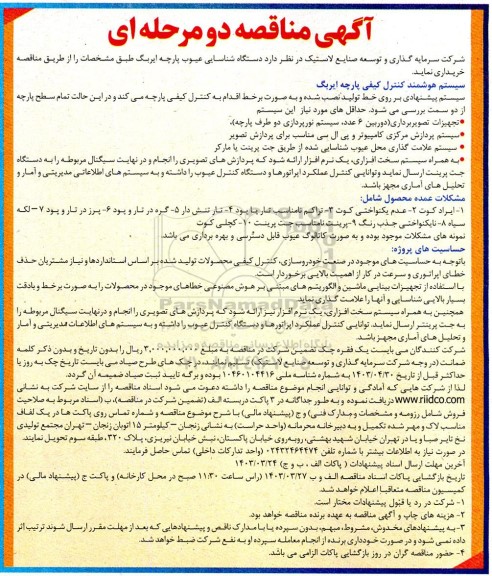 آگهی مناقصه دو مرحله ای
شرکت سرمایه گذاری و توسعه صنایع لاستیک در نظر دارد دستگاه شناسایی عیوب پارچه ایربگ طبق مشخصات را از طریق مناقصه
خریداری نماید.
سیستم هوشمند کنترل کیفی پارچه ایربگ
سیستم پیشنهادی بر روی خط تولید نصب شده و به صورت برخط اقدام به کنترل کیفی پارچه می کند و در این حالت تمام سطح پارچه
از دو سمت بررسی می شود. حداقل های مورد نیاز این سیستم
• تجهیزات تصویربرداری(دوربین ۶ عدد، سیستم نورپردازی دو طرف پارچه)،
• سیستم پردازش مرکزی کامپیوتر و پی ال سی مناسب برای پردازش تصویر
• سیستم علامت گذاری محل عیوب شناسایی شده از طریق جت پرینت یا مارکر
• به همراه سیستم سخت افزاری، یک نرم افزار ارائه شود که پردازش های تصویری را انجام و در نهایت سیگنال مربوطه را به دستگاه
جت پرینت ارسال نماید و توانایی کنترل عملکرد اپراتورها و دستگاه کنترل عیوب را داشته و به سیستم های اطلاعاتی مدیریتی و آمار و
تحلیل های آماری مجهز باشد.
مشکلات عمده محصول شامل:
۱- ایراد کوت ۲- عدم یکنواختی کوت ۳- تراکم نامناسب تار یا پود ۴- تار تنش دار ۵- گره در تار و پود ۶- پرز در تار و پود ۷- لکه
سیاه ۸- نایکنواختی جذب رنگ ۹- پرینت نامناسب جت پرینت ۱۰- کجلی کوت
نمونه های مشکلات موجود بوده و به صورت کاتالوگ عیوب قابل دسترسی و بهره برداری می باشد.
حساسیت های پروژه:
باتوجه به حساسیت های موجود در صنعت خودروسازی، کنترل کیفی محصولات تولید شده بر اساس استانداردها و نیاز مشتریان حذف
خطای اپراتوری و سرعت در کار از اهمیت بالایی برخوردار است.
با استفاده از تجهیزات بینایی ماشین و الگوریتم های مبتنی بر هوش مصنوعی خطاهای موجود در محصولات را به صورت برخط و بادقت
بسیار بالایی شناسایی و آنها را علامت گذاری نماید.
همچنین به همراه سیستم سخت افزاری، یک نرم افزار نیز ارائه شود که پردازش های تصویری را انجام و در نهایت سیگنال مربوطه را
به جت پرینتر ارسال نماید. توانایی کنترل عملکرد اپراتورها و دستگاه کنترل عیوب را داشته و به سیستم های اطلاعات مدیریتی و آمار
و تحلیل های آماری مجهز باشد.
شرکت کنندگان می بایست یک فقره چک تضمین شرکت در مناقصه به مبلغ ریال را بدون تاریخ و بدون ذکر کلمه
ضمانت (در وجه شرکت سرمایه گذاری و توسعه صنایع لاستیک) تسلیم نمایند. در چک های طرح صیاد می بایست تاریخ چک به روز یا
حداکثر قبل از تاریخ ۱۴۰۳/۰۴/۳۰ به شماره شناسه ملی بوده و برگه تایید ثبت صیاد ضمیمه آن گردد.
لذا از شرکت هایی که آمادگی و توانایی انجام موضوع مناقصه را داشته دعوت می شود اسناد مناقصه را از سایت شرکت به نشانی
www.riidco.com دریافت نموده و به طور جداگانه در ۳ پاکت دربسته الف (تضمین شرکت در مناقصه)، ب (اسناد مربوط به صلاحیت
فروش شامل رزومه و مشخصات و مدارک فنی) و ج (پیشنهاد مالی) با شرح موضوع مناقصه و شماره تماس روی پاکت ها در یک لفاف
مناسب لاک و مهر شده تکمیل و به دبیرخانه محرمانه (واحد حراست) به نشانی زنجان - کیلومتر ۱۵ اتوبان زنجان - تهران مجتمع تولیدی
نخ تایر صبا و یا در تهران خیابان شهید بهشتی، روبه روی خیابان پاکستان، نبش خیابان تبریزی، پلاک ۳۲۰، طبقه سوم تحویل نمایند.
در صورت نیاز به اطلاعات بیشتر با شماره تلفن ۰۲۴۳۲۴۶۴۴۷۴ (واحد تدارکات داخلی) تماس حاصل فرمایند.
آخرین مهلت ارسال اسناد پیشنهادات ( پاکات الف ، ب و ج) ۱۴۰۳/۰۳/۲۴
تاریخ بازگشایی پاکات اسناد مناقصه الف و ب ۱۴۰۳/۰۳/۲۷ (راس ساعت ۱۱:۳۰ صبح در محل کارخانه) و پاکت ج (پیشنهاد مالی) در
کمیسیون مناقصه متعاقبا اعلام خواهد شد.
۱- شرکت در رد یا قبول پیشنهادات مختار است.
۲- هزینه های چاپ و آگهی مناقصه به عهده برنده مناقصه خواهد بود.
۳- به پیشنهادهای مخدوش، مشروط، مبهم، بدون سپرده یا با مدارک ناقص و پیشنهادهایی که بعد از مهلت مقرر ارسال شوند ترتیب اثر
داده نمی شود و در صورت خودداری برنده از انجام معامله سپرده او به نفع شرکت ضبط خواهد شد.
۴- حضور مناقصه گران در روز بازگشایی پاکات الزامی می باشد.